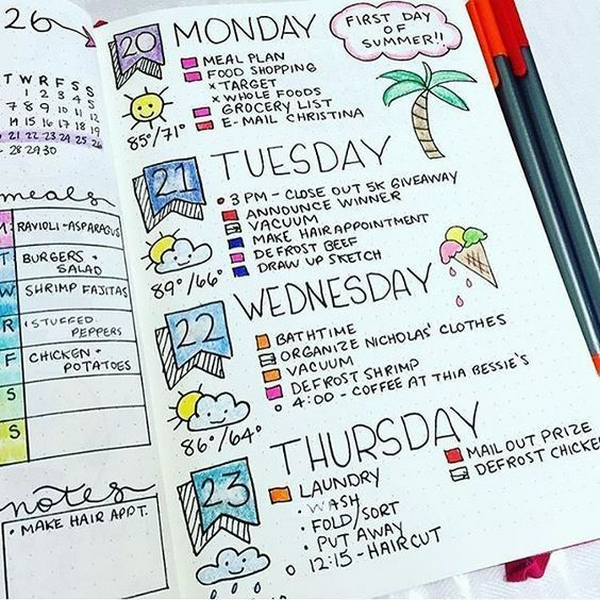 26
T W R F S S
1 2 3 4 5
7 8 9 10 11 12
14 15 16 17 18 19
21 22 23 24 25 26
28 29 30
meals
M: RAVIOLI - ASPARAGUS
T BURGERS +
SALAD
W SHRIMP FAJITAS
R STUFFED
PEPPERS
F CHICKEN +
POTATOES
S
S
notes
• MAKE HAIR APPT.
20 MONDAY
FIRST DAY
OF
SUMMER!!
MEAL PLAN
FOOD SHOPPING
x TARGET
x WHOLE FOODS
GROCERY LIST
E-MAIL CHRISTINA
85°/71°
21 TUESDAY
3 PM - CLOSE OUT 5K GIVEAWAY
ANNOUNCE WINNER
VACUUM
MAKE HAIR APPOINTMENT
DEFROST BEEF
DRAW UP SKETCH
89°/66°
22 WEDNESDAY
BATHTIME
ORGANIZE NICHOLAS' CLOTHES
VACUUM
DEFROST SHRIMP
4:00 - COFFEE AT THIA BESSIE'S
86°/64°
23 THURSDAY
LAUNDRY
• WASH
• FOLD/SORT
• PUT AWAY
12:15 - HAIRCUT
MAIL OUT PRIZE
DEFROST CHICKE